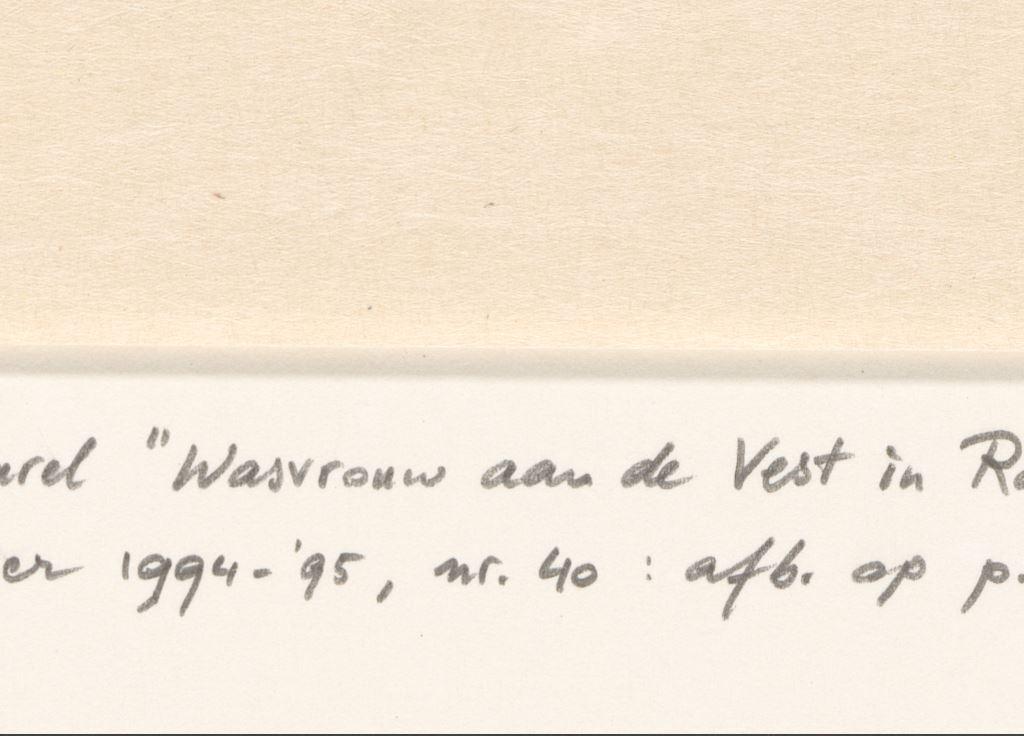 "Wasvrouw aan de Vest in
1994-'95, nr. 40 : afb. op p.